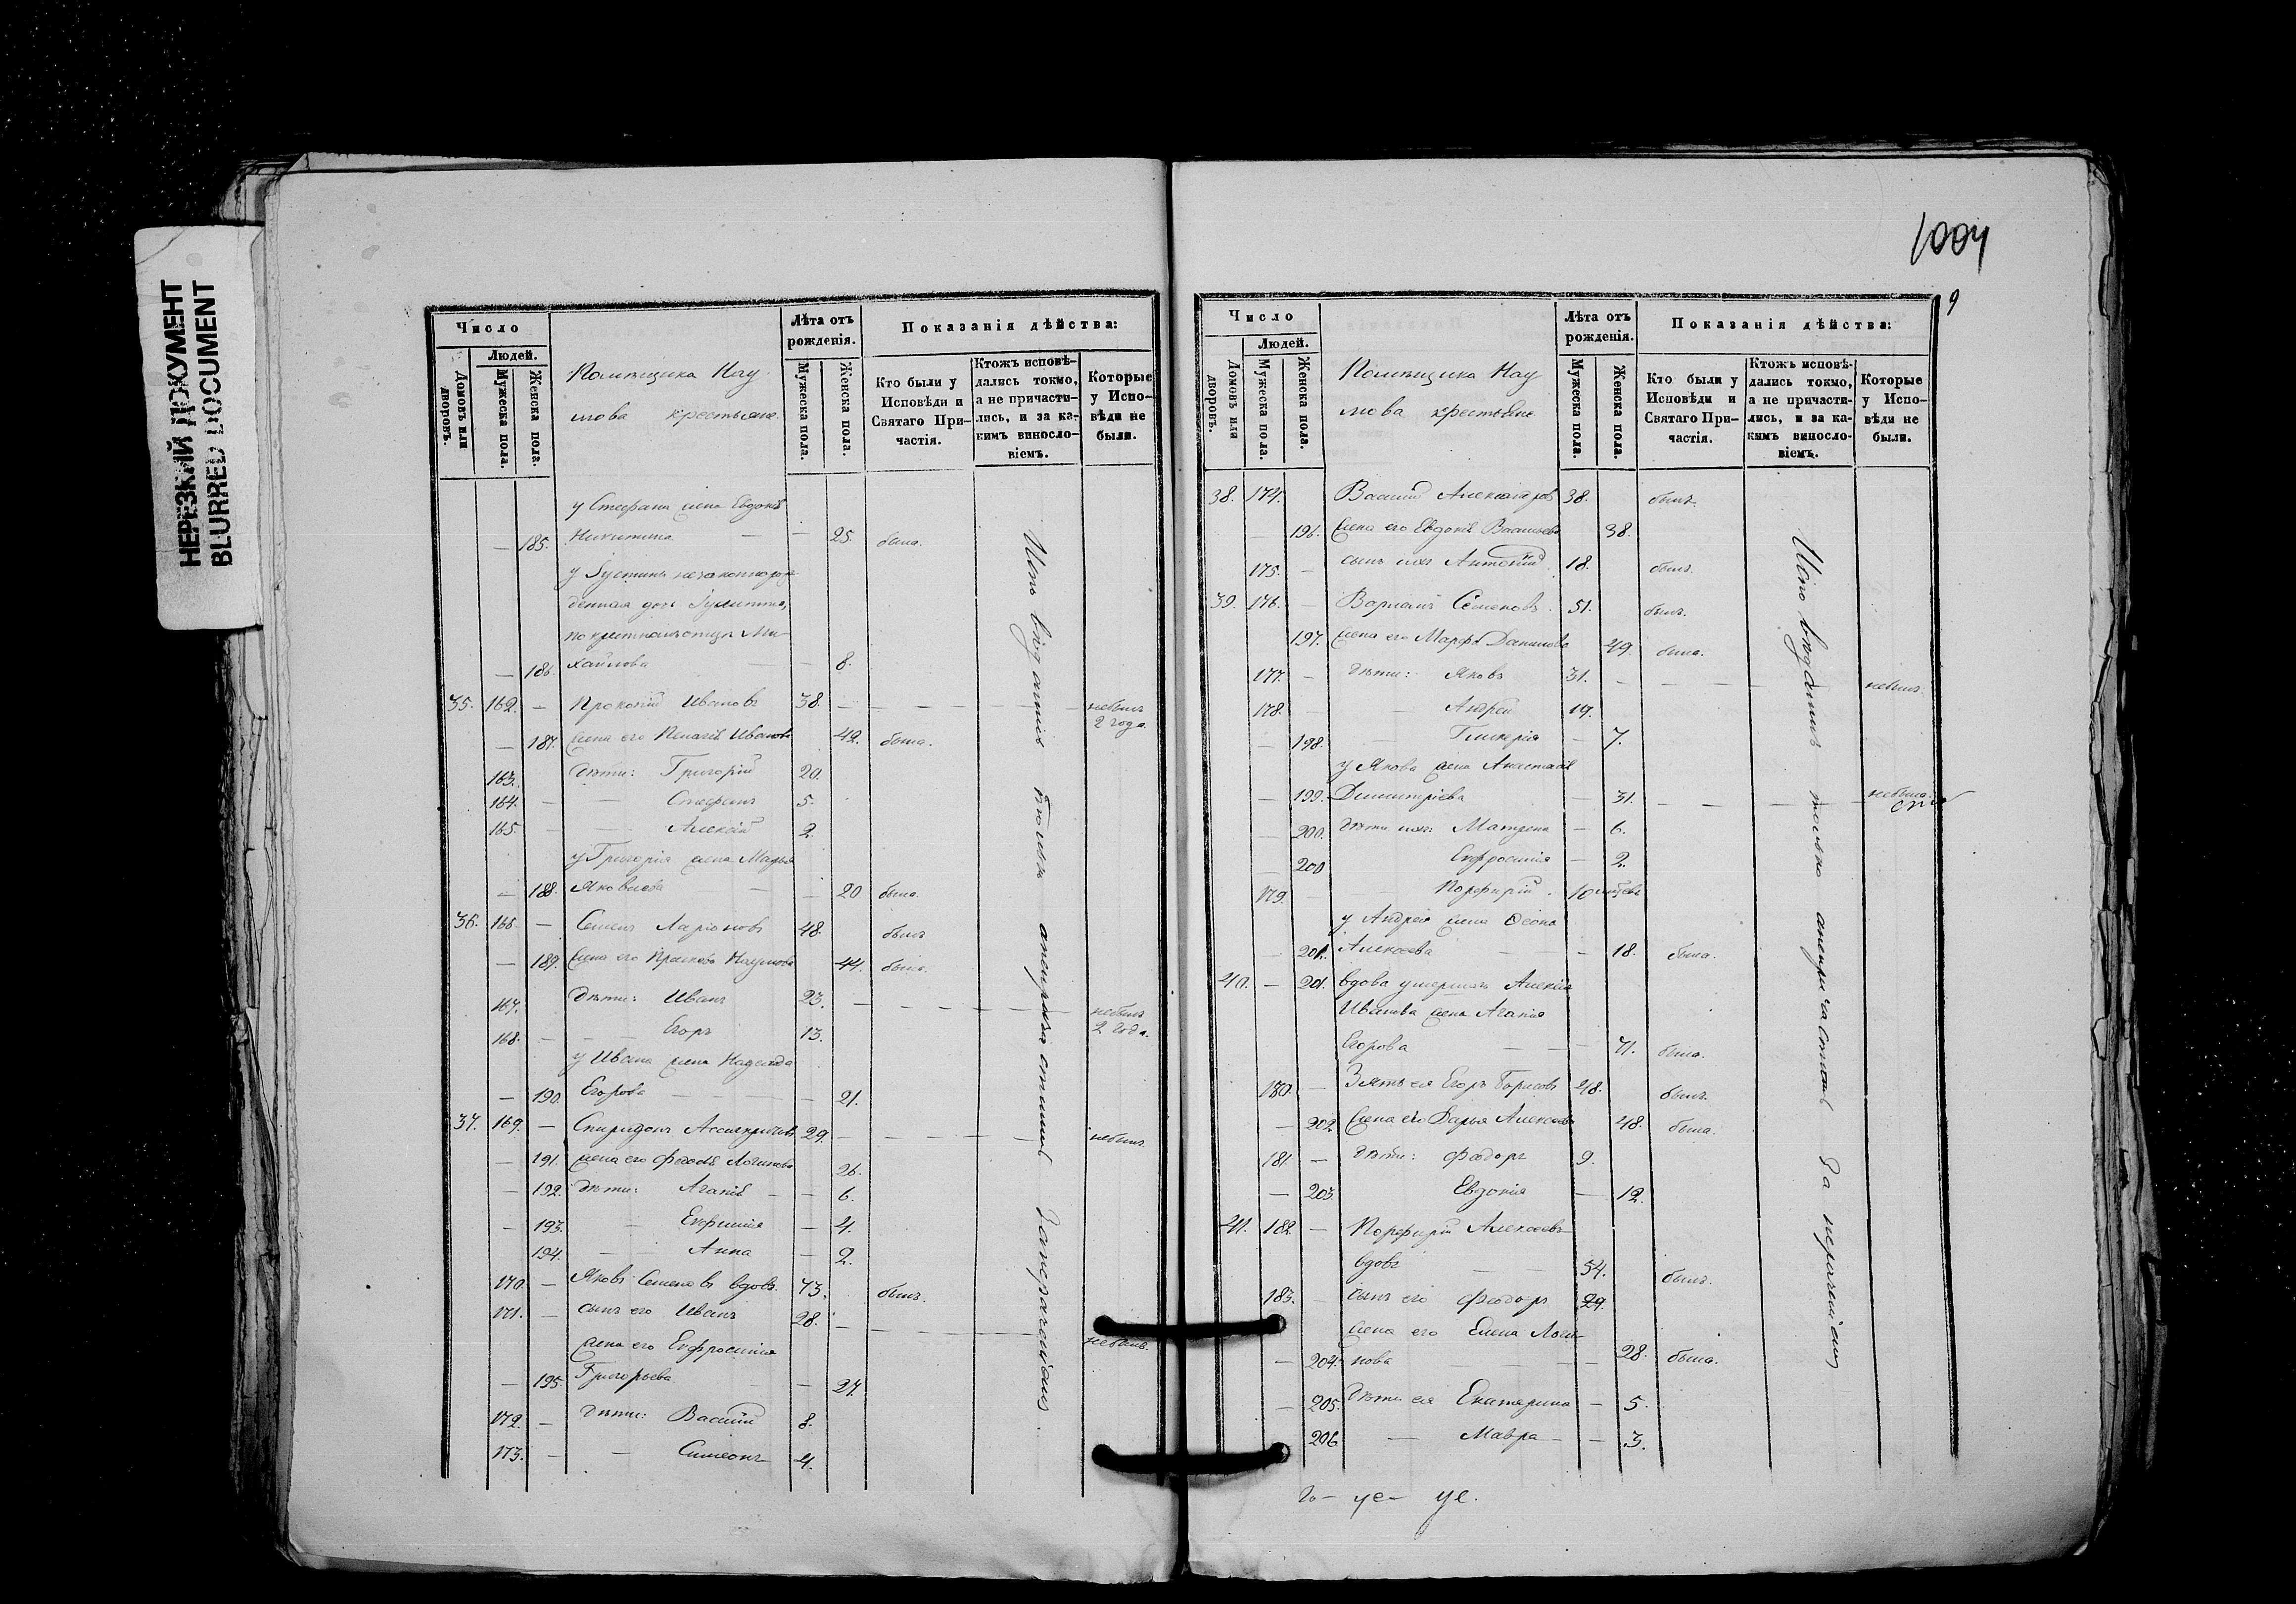 НЕРЕЗКИЙ ДОКУМЕНТ
BLURRED DOCUMENT
Число
Людей.
Домовъ или дворовъ.
Мужеска пола.
Женска пола.
Помѣщика Нау-
мова крестьяне
Лѣта отъ рожденія.
Мужеска пола.
Женска пола.
Показанія дѣйства:
Кто были у Исповѣди и Святаго При-частія.
Ктожъ исповѣ-дались токмо, а не причасти-лись, и за ка-кимъ винословіемъ.
Которые у Испо-вѣди не были.
у Стефана жена Евдокія
185. Никитина — — 25. была.
у Іустины незаконнорож-
денная дочь Іулитта,
по крестномъ отцѣ Ми-
186. хайлова — — 8.
35. 162. — Прокопій Ивановъ 38. — небылъ 2 года.
187. жена его Пелагія Иванова 42. была.
163. дѣти: Григорій 20.
164. — — Стефанъ 5.
165 — — Алексій 2.
у Григорія жена Марья
188. Яковлева — — 20 была.
36. 166. — Семенъ Ларіоновъ 48. былъ
189. жена его Прасковья Наумова 44. была.
167. дѣти: Иванъ 23. — небылъ 2 года.
168. — — Егоръ 13.
у Ивана жена Надежда
190. Егорова — — 21.
37. 169. — Спиридонъ Ассинкритовъ 29. — небылъ
191. жена его Логинова 26.
192. дѣти: Агапія — — 6.
193. — Евфимія — 4.
194. — Анна — 2.
170. — Яковъ Семеновъ вдовъ. 73. былъ.
171. — сынъ его Иванъ 28. — небылъ.
жена его Евфросинія
195. Григорьева — — 27.
172. — дѣти: Василій 8.
173. — — Симеонъ 4.
Исповѣдались только а непричастились за нераченіемъ.
1004
9
Число
Людей.
Домовъ или дворовъ.
Мужеска пола.
Женска пола.
Помѣщика Нау-
мова крестьяне
Лѣта отъ рожденія.
Мужеска пола.
Женска пола.
Показанія дѣйства:
Кто были у Исповѣди и Святаго При-частія.
Ктожъ исповѣ-дались токмо, а не причасти-лись, и за ка-кимъ винословіемъ.
Которые у Испо-вѣди не были.
38. 174. Василій Александровъ 38. былъ.
196. жена его Евдокія Васильева 38.
175. — сынъ ихъ Антоній 18. былъ.
39. 176. — Варлаамъ Семеновъ. 51. былъ.
197. жена его Марфа Данилова 49. была.
177. — дѣти: Яковъ 31. — небылъ.
178. — Андрей 19.
198. Гликерія — 7.
у Якова жена Анастасія
199. Димитріева — 31. — небыла.
200. дѣти ихъ: Матрена — 6.
200 Евфросинія — 2.
179. — Порфирій. 10 мѣсяцевъ
у Андрея жена Ѳеона
201. Алексѣева — — 18. была.
40. — 201. вдова умершаго Алексія
Иванова жена Агапія
Егорова — — 71. была.
180. — Зять ея Егоръ Борисовъ 48. былъ.
202 жена его Дарья Алексѣева 48. была.
181. — дѣти: Ѳедоръ 9.
203. Евдокія — 12.
41. 182. — Порфирій Алексѣевъ
вдовъ — — 54. былъ.
183. — сынъ его Ѳедоръ 29.
жена его Елена Логи-
204. нова — — 28. была.
205. дѣти ея Екатерина — 5.
206 — Мавра — — 3.
Исповѣдались только а непричастились за нераченіемъ